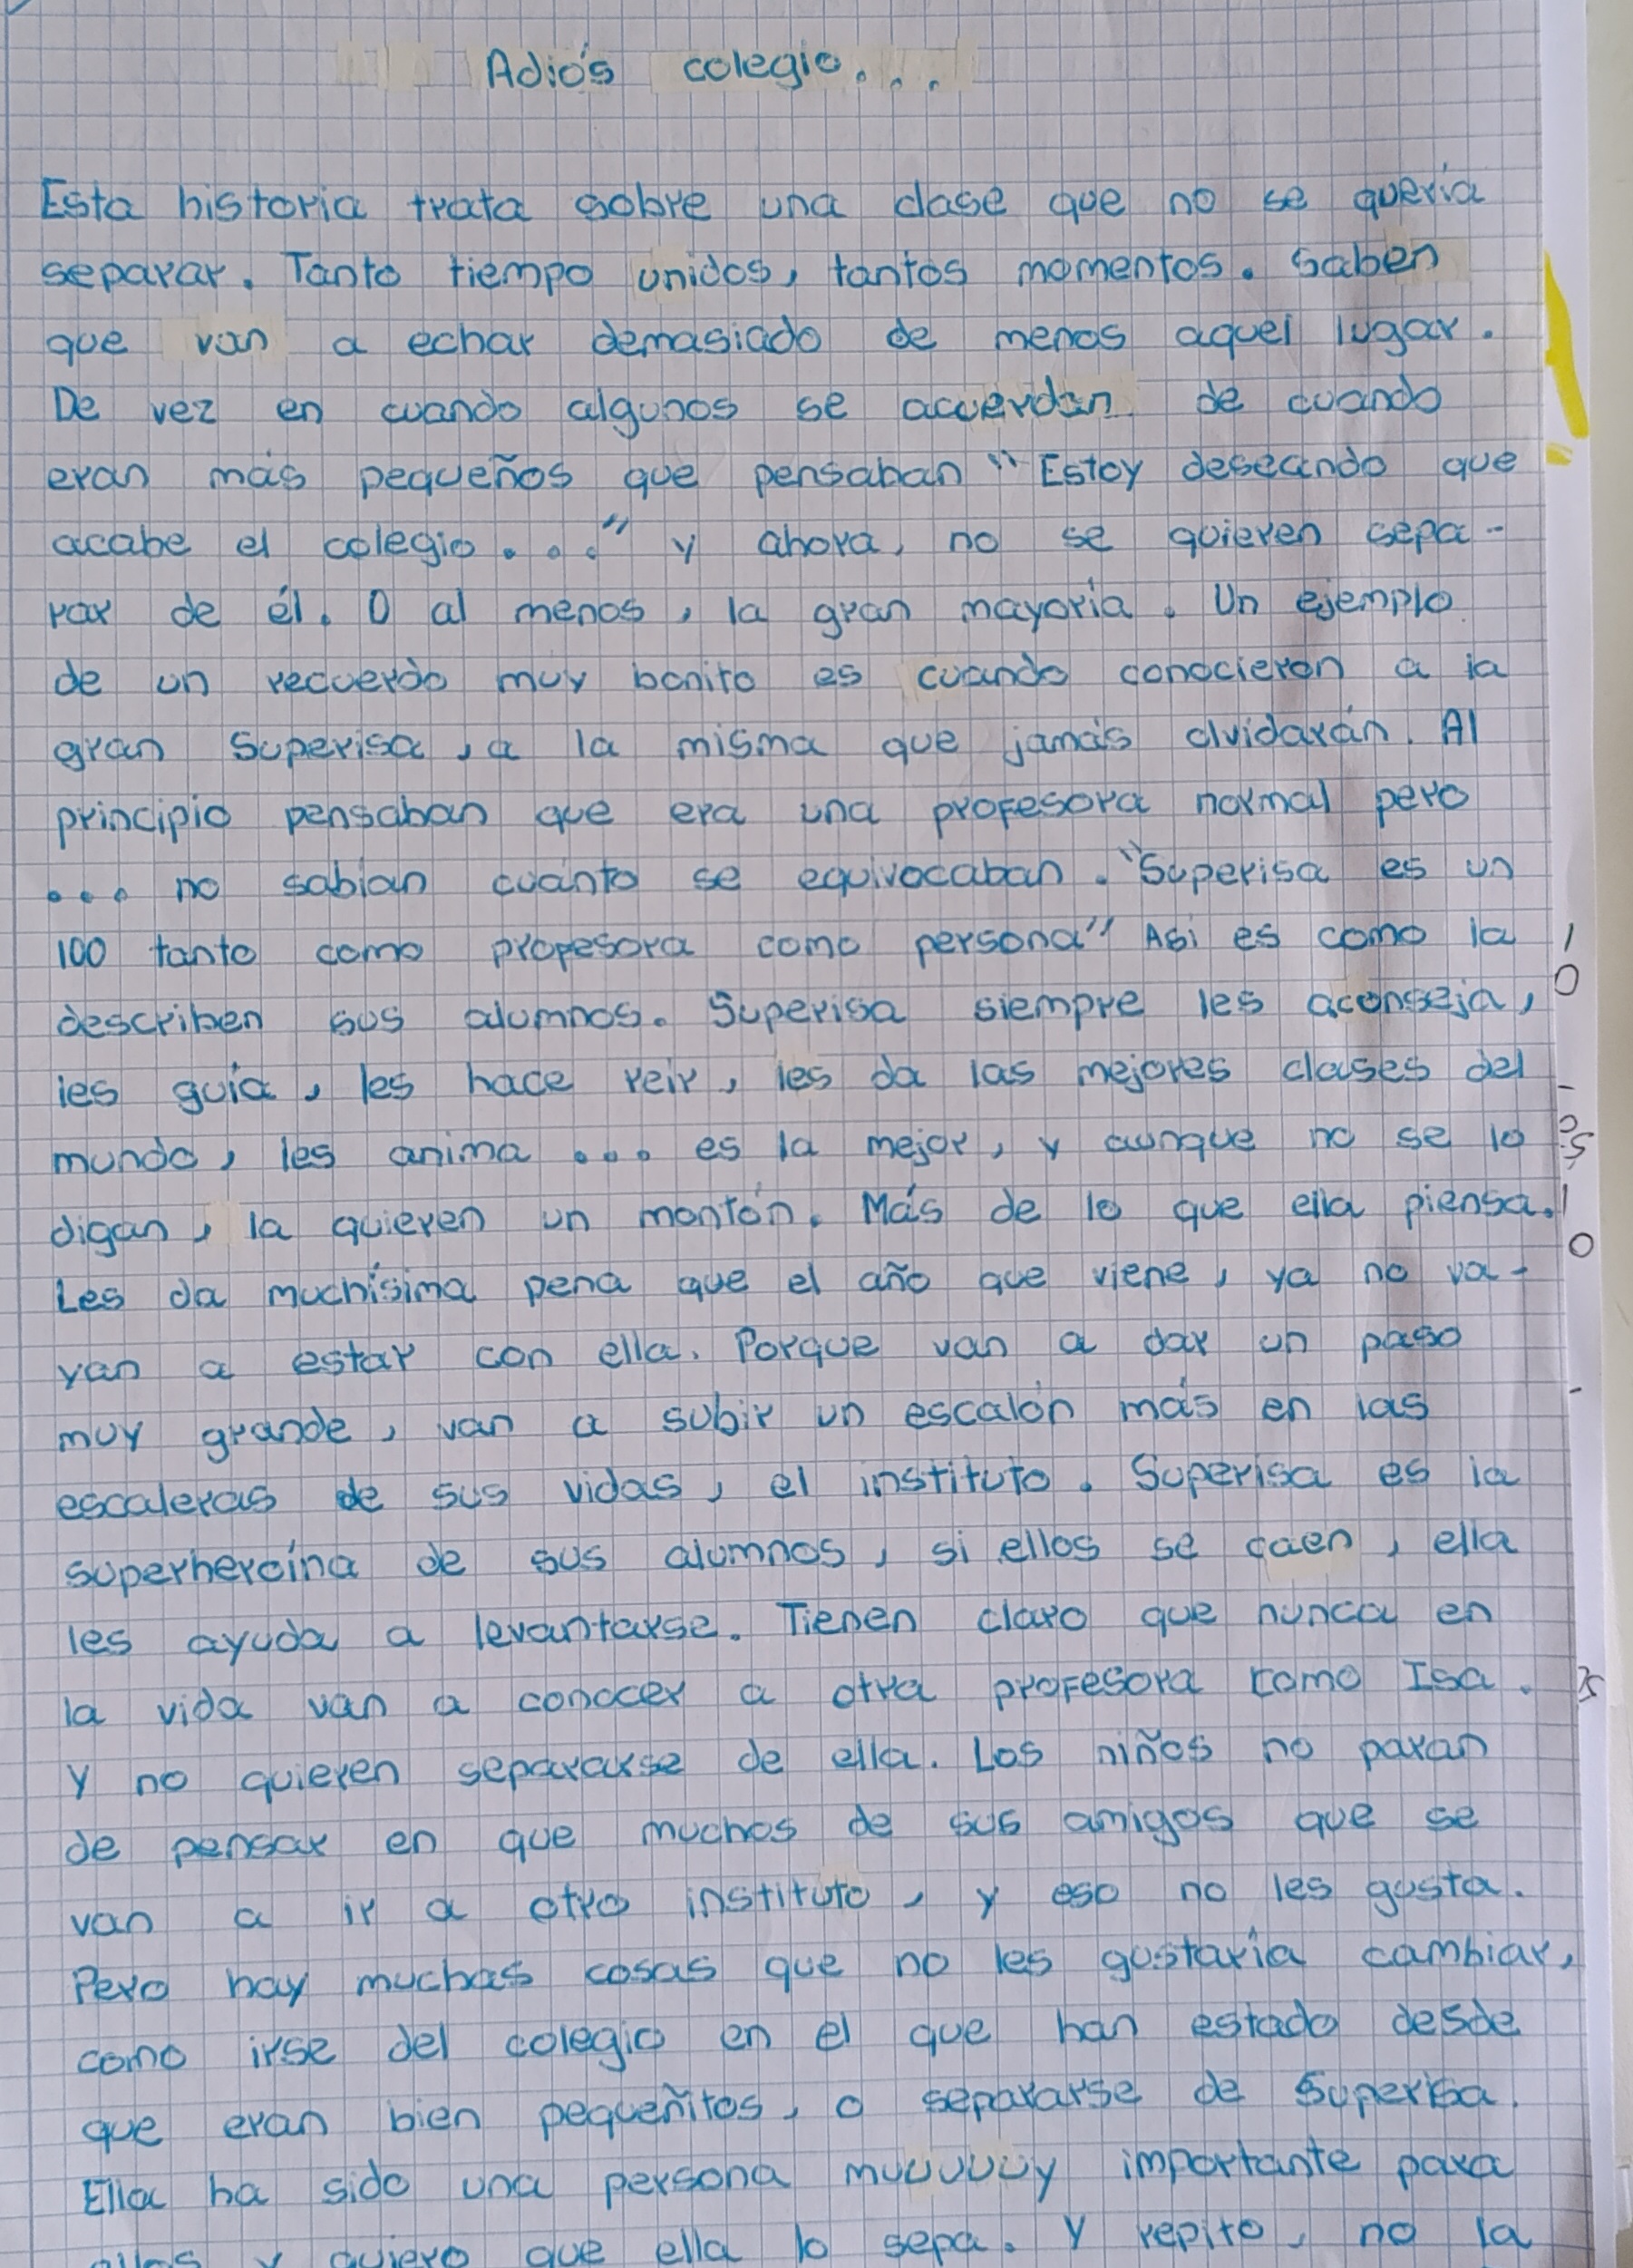 Adiós colegio...
Esta historia trata sobre una clase que no se quería
separar. Tanto tiempo unidos, tantos momentos. Saben
que van a echar demasiado de menos aquel lugar.
De vez en cuando algunos se acuerdan de cuando
eran más pequeños que pensaban "Estoy deseando que
acabe el colegio..." y ahora, no se quieren sepa-
rar de él. O al menos, la gran mayoría. Un ejemplo
de un recuerdo muy bonito es cuando conocieron a la
gran Superisa, a la misma que jamás olvidarán. Al
principio pensaban que era una profesora normal pero
... no sabían cuánto se equivocaban. "Superisa es un
100 tanto como profesora como persona" Así es como la
describen sus alumnos. Superisa siempre les aconseja,
les guía, les hace reir, les da las mejores clases del
mundo, les anima ... es la mejor, y aunque no se lo
digan, la quieren un montón. Más de lo que ella piensa.
Les da muchísima pena que el año que viene, ya no va-
yan a estar con ella. Porque van a dar un paso
muy grande, van a subir un escalón más en las
escaleras de sus vidas, el instituto. Superisa es la
superheroína de sus alumnos, si ellos se caen, ella
les ayuda a levantarse. Tienen claro que nunca en
la vida van a conocer a otra profesora como Isa.
Y no quieren separarse de ella. Los niños no paran
de pensar en que muchos de sus amigos que se
van a ir a otro instituto, y eso no les gusta.
Pero hay muchas cosas que no les gustaría cambiar,
como irse del colegio en el que han estado desde
que eran bien pequeñitos, o separarse de Superisa.
Ella ha sido una persona muuuuuy importante para
ellos y quiero que ella lo sepa. Y repito, no la